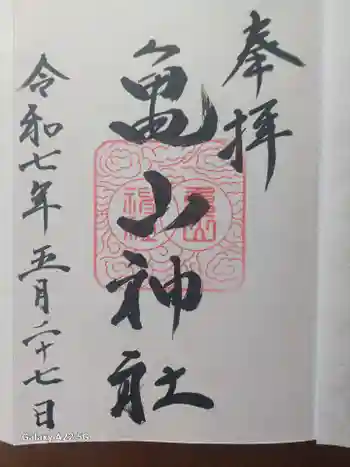 奉拝
亀山神社
令和七年五月二十七日
Galaxy A22 5G